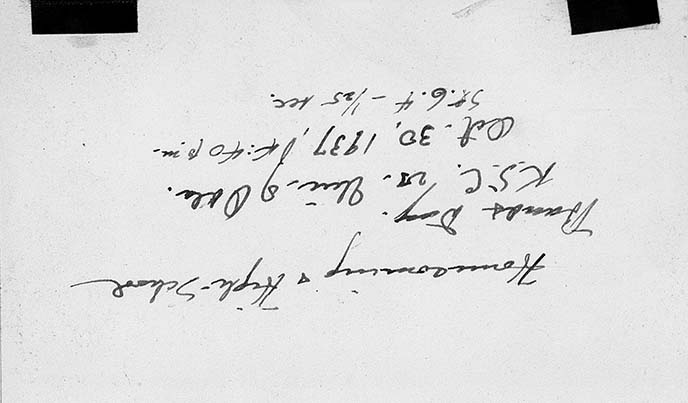 Homecoming & High-School
Bands Day.
K.S.C. vs. Uni. of Okla.
Oct. 30, 1937, 4:40 p.m.
St. 6.4 - 1/25 sec.